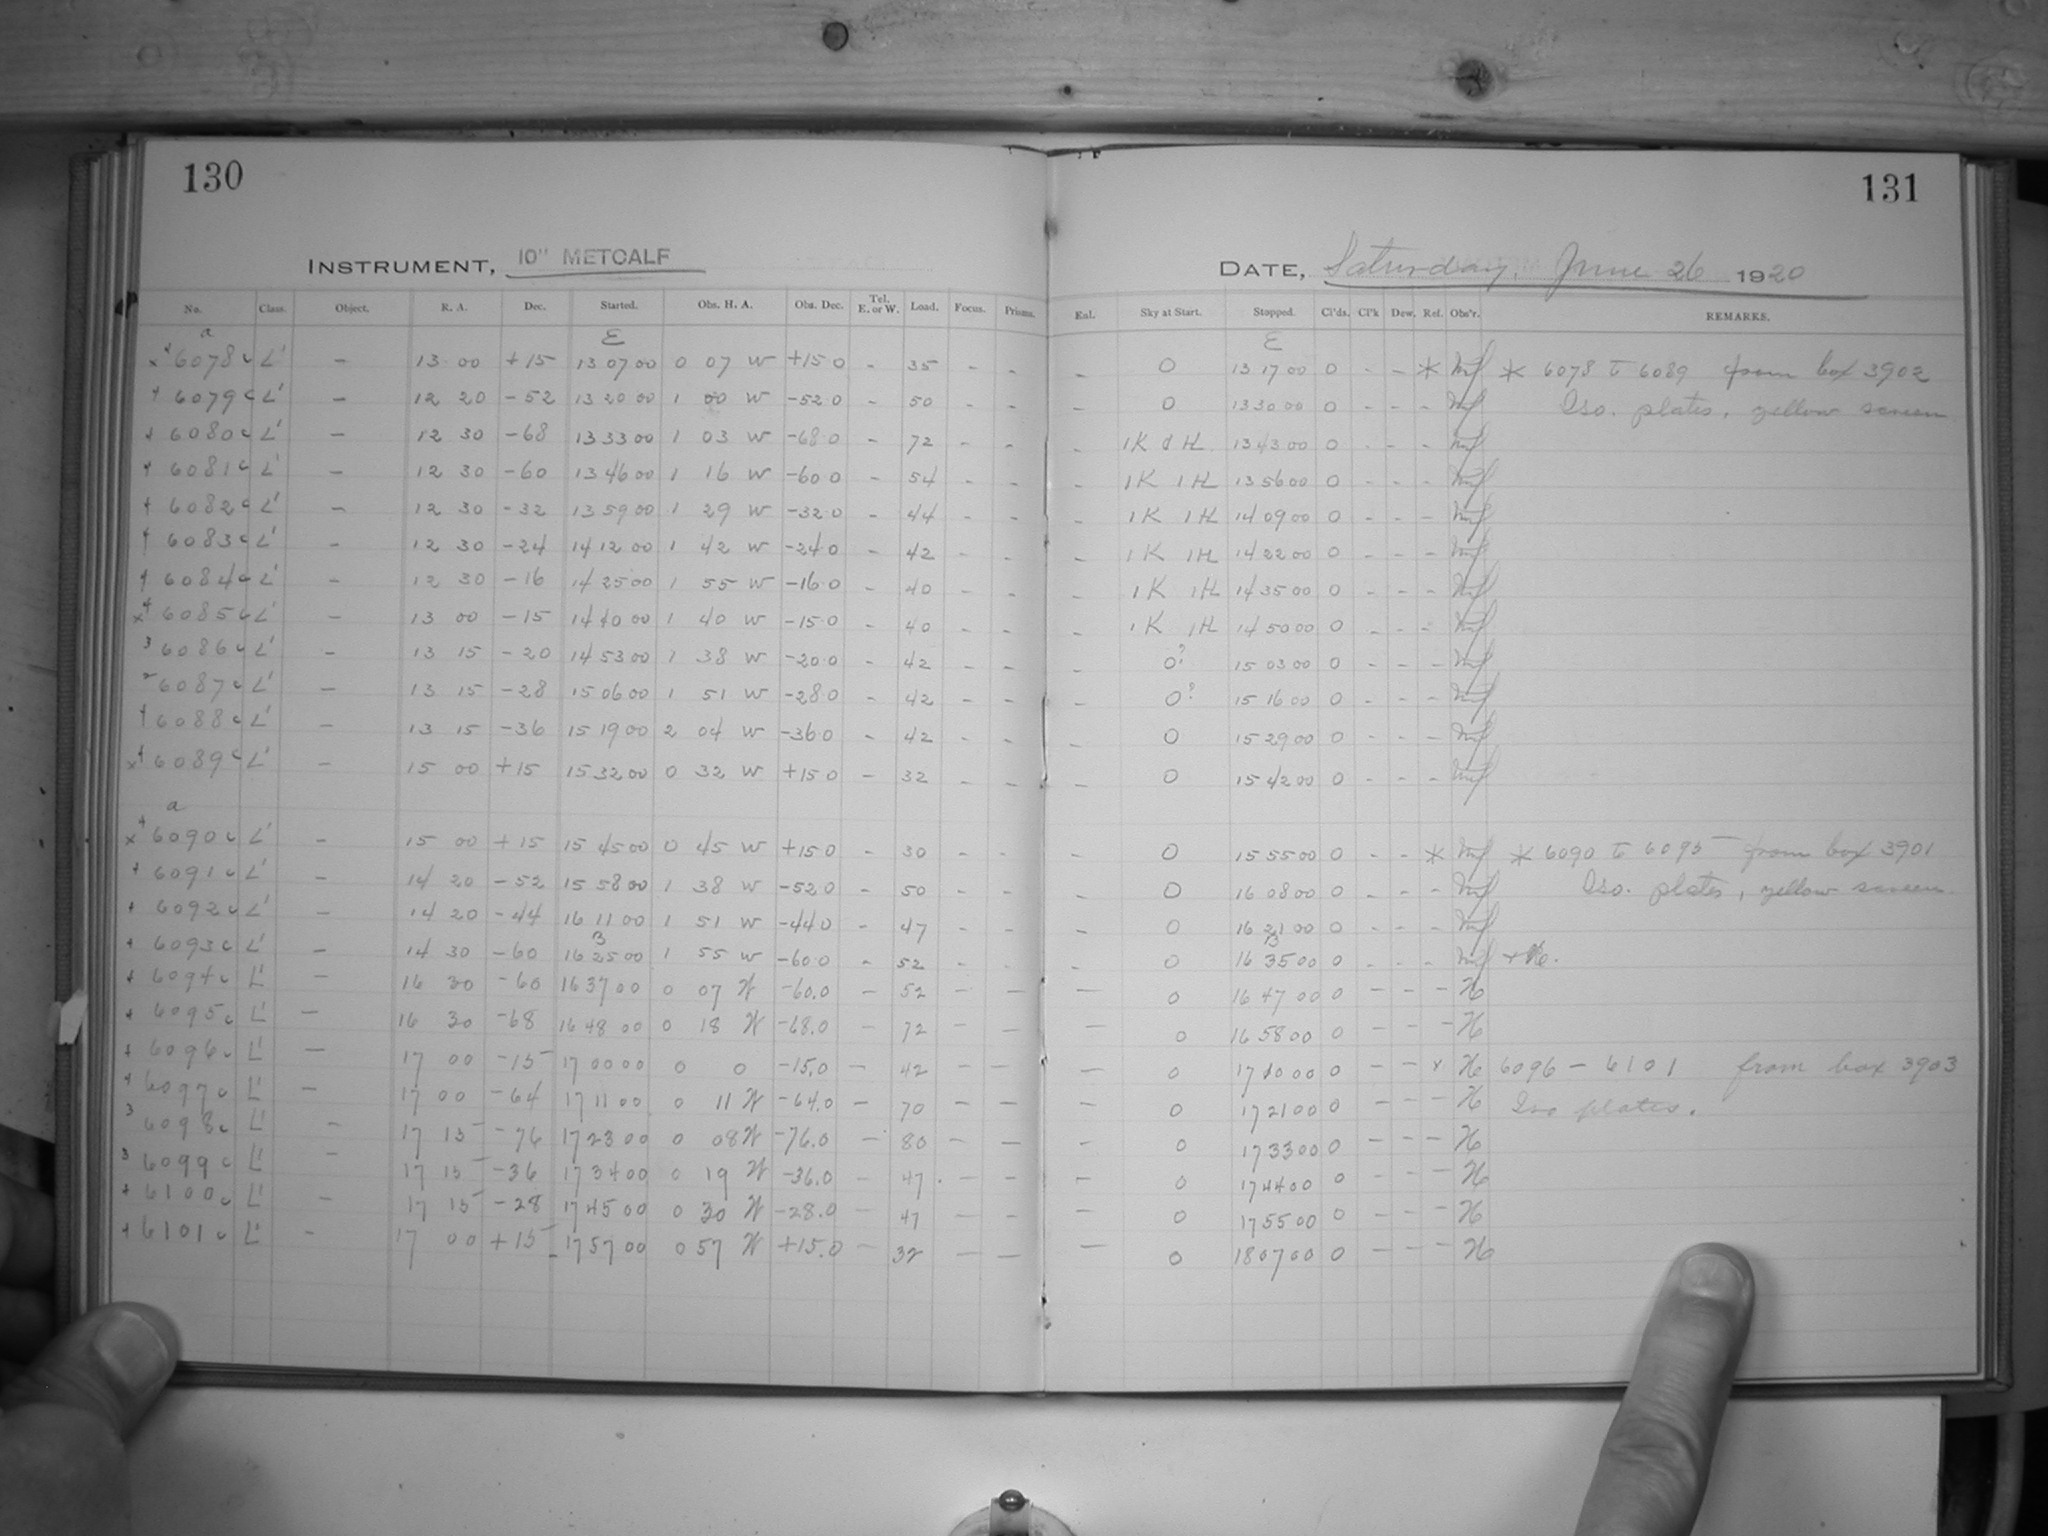 130
131
INSTRUMENT, 10" METCALF
DATE, Saturday, June 26 1920
No. Class. Object. R. A. Dec. Started. Obs. H. A. Obs. Dec. Tel. E. or W. Load. Focus. Prisms. Enl. Sky at Start. Stopped. Cl'ds. Cl'k Dew. Ref. Obs'r. REMARKS.
a E E
x 4 6078 c L' - 13 00 +15 13 07 00 0 07 W +15 0 - 35 - - - 0 13 17 00 0 - - * * 6078 to 6089 from box 3902
4 6079 c L' - 12 20 -52 13 20 00 1 00 W -52 0 - 50 - - - 0 13 30 00 0 - - - Iso. plates, yellow screen
4 6080 c L' - 12 30 -68 13 33 00 1 03 W -68 0 - 72 - - - 1K 1H 13 43 00 0 - - -
4 6081 c L' - 12 30 -60 13 46 00 1 16 W -60 0 - 54 - - - 1K 1H 13 56 00 0 - - -
4 6082 c L' - 12 30 -32 13 59 00 1 29 W -32 0 - 44 - - - 1K 1H 14 09 00 0 - - -
4 6083 c L' - 12 30 -24 14 12 00 1 42 W -24 0 - 42 - - - 1K 1H 14 22 00 0 - - -
4 6084 c L' - 12 30 -16 14 25 00 1 55 W -16 0 - 40 - - - 1K 1H 14 35 00 0 - - -
x 4 6085 c L' - 13 00 -15 14 40 00 1 40 W -15 0 - 40 - - - 1K 1H 14 50 00 0 - - -
3 6086 c L' - 13 15 -20 14 53 00 1 38 W -20 0 - 42 - - - 0? 15 03 00 0 - - -
2 6087 c L' - 13 15 -28 15 06 00 1 51 W -28 0 - 42 - - - 0? 15 16 00 0 - - -
4 6088 c L' - 13 15 -36 15 19 00 2 04 W -36 0 - 42 - - - 0 15 29 00 0 - - -
x 4 6089 c L' - 15 00 +15 15 32 00 0 32 W +15 0 - 32 - - - 0 15 42 00 0 - - -
a
x 4 6090 c L' - 15 00 +15 15 45 00 0 45 W +15 0 - 30 - - - 0 15 55 00 0 - - * * 6090 to 6095 from box 3901
4 6091 c L' - 14 20 -52 15 58 00 1 38 W -52 0 - 50 - - - 0 16 08 00 0 - - - Iso. plates, yellow screen
4 6092 c L' - 14 20 -44 16 11 00 1 51 W -44 0 - 47 - - - 0 16 21 00 0 - - -
4 6093 c L' - 14 30 -60 16 25 00 1 55 W -60 0 - 52 - - - 0 16 35 00 0 - - - + H.
4 6094 c L' - 16 30 -60 16 37 00 0 07 W -60.0 - 52 - - - 0 16 47 00 0 - - - H
4 6095 c L' - 16 30 -68 16 48 00 0 18 W -68.0 - 72 - - - 0 16 58 00 0 - - - H
4 6096 c L' - 17 00 -15 17 00 00 0 0 -15.0 - 42 - - - 0 17 10 00 0 - - x H 6096 - 6101 from box 3903
4 6097 c L' - 17 00 -64 17 11 00 0 11 W -64.0 - 70 - - - 0 17 21 00 0 - - - H Iso plates.
3 6098 c L' - 17 15 -76 17 23 00 0 08 W -76.0 - 80 - - - 0 17 33 00 0 - - - H
3 6099 c L' - 17 15 -36 17 34 00 0 19 W -36.0 47 - - - 0 17 44 00 0 - - - H
4 6100 c L' - 17 15 -28 17 45 00 0 30 W -28.0 - 47 - - - 0 17 55 00 0 - - - H
4 6101 c L' - 17 00 +15 17 57 00 0 57 W +15.0 - 32 - - - 0 18 07 00 0 - - - H